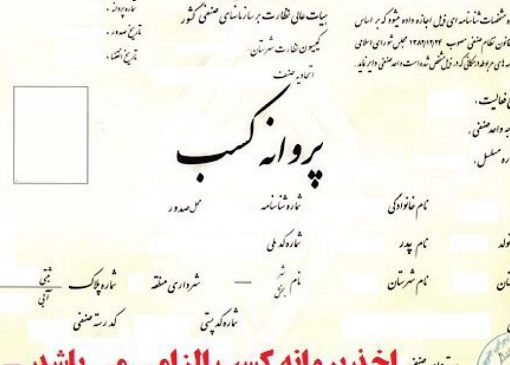 هیات عالی نظارت بر سازمانهای صنفی کشور
کمیسیون نظارت شهرستان
اتحادیه صنف
شماره پروانه :
تاریخ صدور :
تاریخ انقضا :
مشخصات شناسنامه ای ذیل اجازه داده میشود که بر اساس
قانون نظام صنفی مصوب ۱۳۸۲/۱۲/۲۴ مجلس شورای اسلامی
های مربوطه در مکانی که در ذیل مشخص شده است واحد صنفی دایر نماید.
فعالیت .
واحد صنفی .
مسلسل .
پروانه کسب
نام خانوادگی شماره شناسنامه محل صدور
تولد نام پدر شماره کد ملی
نام شهرستان نام شهر بخش شهرداری منطقه شماره پلاک ثبتی آبی
شماره کد پستی کد رسته صنفی
اخذ پروانه کسب الزامی می باشد